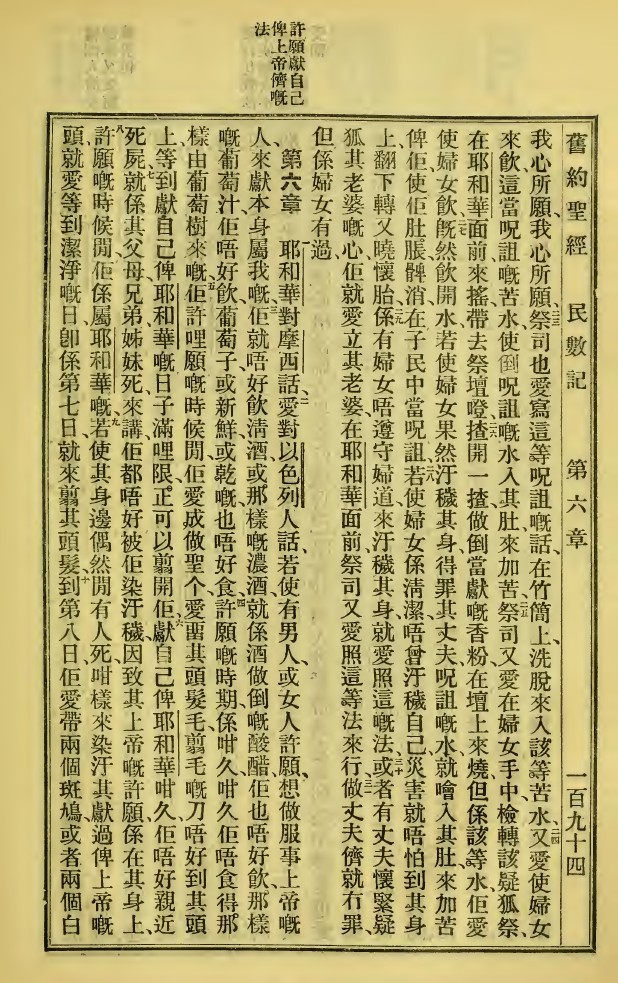 許願獻自己
俾上帝儕嘅
法
舊約聖經 民數記 第六章 一百九十四
我心所願、我心所願、二三祭司也愛寫這等呪詛嘅話、在竹簡上、洗脫來入該等苦水、二四又愛使婦女
來飲這當呪詛嘅苦水、使倒呪詛嘅水入其肚來加苦、二五祭司又愛在婦女手中、檢轉該疑狐祭、
在耶和華面前來搖、帶去祭壇磴、二六揸開一揸做倒當獻嘅香粉、在壇上來燒、但係該等水、佢愛
使婦女飲、二七既然飲開水、若使婦女果然汙穢其身、得罪其丈夫、呪詛嘅水、就噲入其肚來加苦、
俾佢使佢肚脹髀消、在子民中當呪詛、二八若使婦女係清潔、唔曾汙穢自己、災害就唔怕到其身
上、翻下轉又曉懷胎、二九係有婦女唔遵守婦道、來汙穢其身、就愛照這嘅法、三十或者有丈夫懷緊疑
狐其老婆嘅心、佢就愛立其老婆在耶和華面前、祭司又愛照這等法來行、三一做丈夫儕就冇罪、
但係婦女有過
第六章 一耶和華對摩西話、二愛對以色列人話、若使有男人、或女人許願、想做服事上帝嘅
人、來獻本身屬我嘅、三佢就唔好飲清酒、或那樣嘅濃酒、就係酒做倒嘅酸醋、佢也唔好飲、那樣
嘅葡萄汁、佢唔好飲、葡萄子或新鮮或乾嘅、也唔好食、四許願嘅時期、係咁久、咁久佢唔食得那
樣由葡萄樹來嘅、五佢許哩願嘅時候閒、佢愛成做聖个、愛畱其頭髮毛、翦毛嘅刀、唔好到其頭
上、等到獻自己俾耶和華嘅日子滿哩限、正可以翦開佢、六獻自己俾耶和華咁久、佢唔好親近
死屍、七就係其父母兄弟姊妹死、來講、佢都唔好被佢染汙穢、因致其上帝嘅許願、係在其身上、
八許願嘅時候閒、佢係屬耶和華嘅、九若使其身邊偶然閒有人死、咁樣來染汙其獻過俾上帝嘅
頭、就愛等到潔淨嘅日、卽係第七日、就來翦其頭髮、十到第八日、佢愛帶兩個斑鳩、或者兩個白